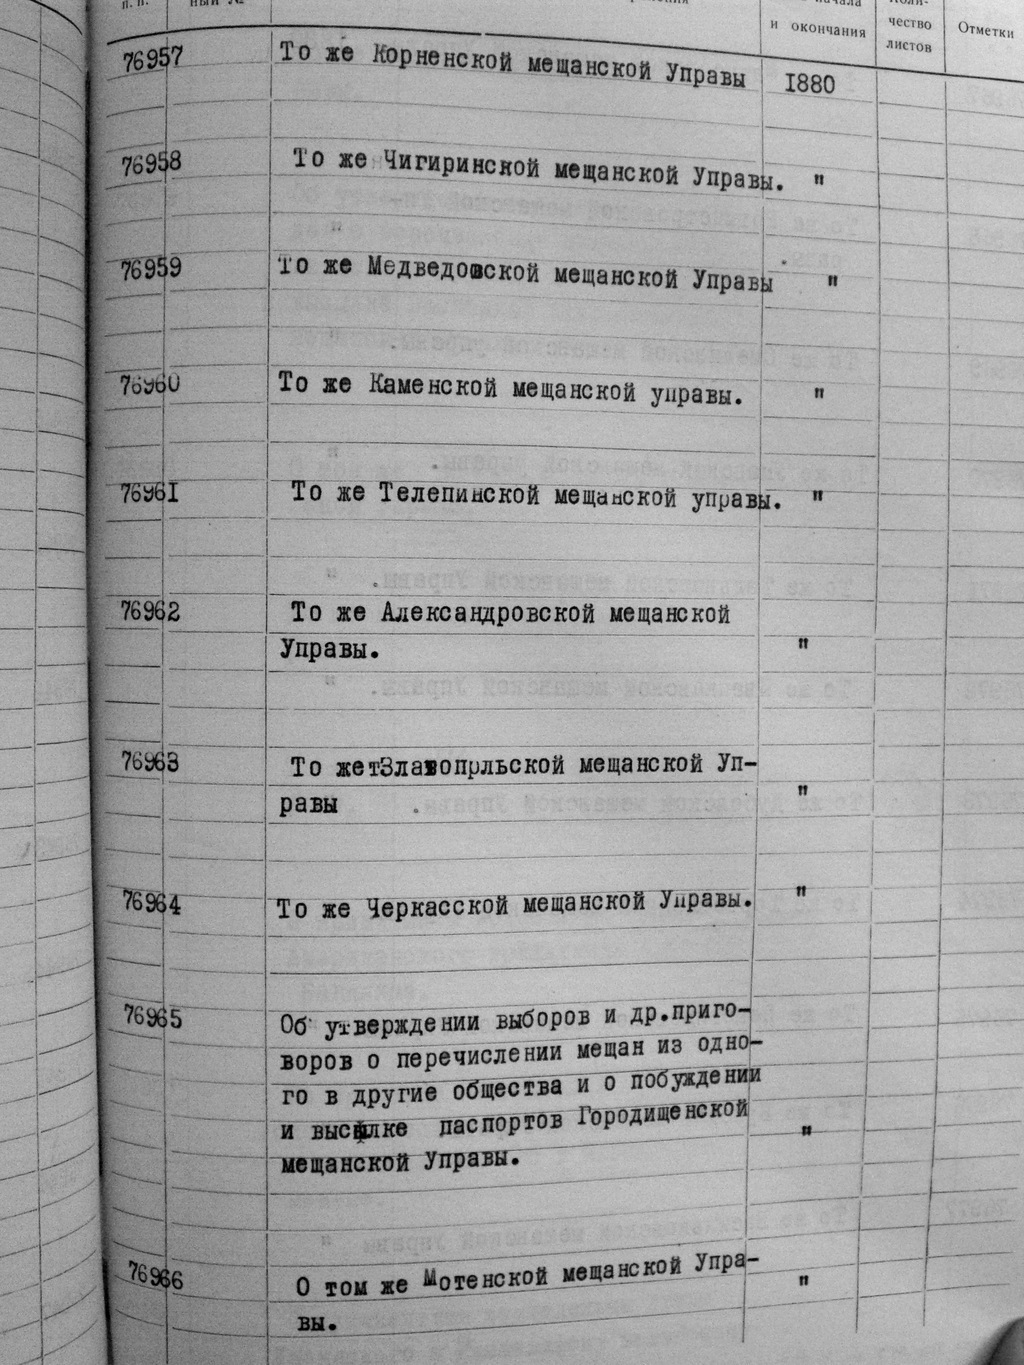 п. п.
ный №
начала
и окончания
Коли-
чество
листов
Отметки
76957 То же Корненской мещанской Управы 1880
76958 То же Чигиринской мещанской Управы. "
76959 То же Медведовской мещанской Управы "
76960 То же Каменской мещанской управы. "
76961 То же Телепинской мещанской управы. "
76962 То же Александровской мещанской
Управы. "
76963 То же Златопольской мещанской Уп-
равы "
76964 То же Черкасской мещанской Управы. "
76965 Об утверждении выборов и др.приго-
воров о перечислении мещан из одно-
го в другие общества и о побуждении
и высылке паспортов Городищенской "
мещанской Управы.
76966 О том же Мотенской мещанской Упра-
вы. "